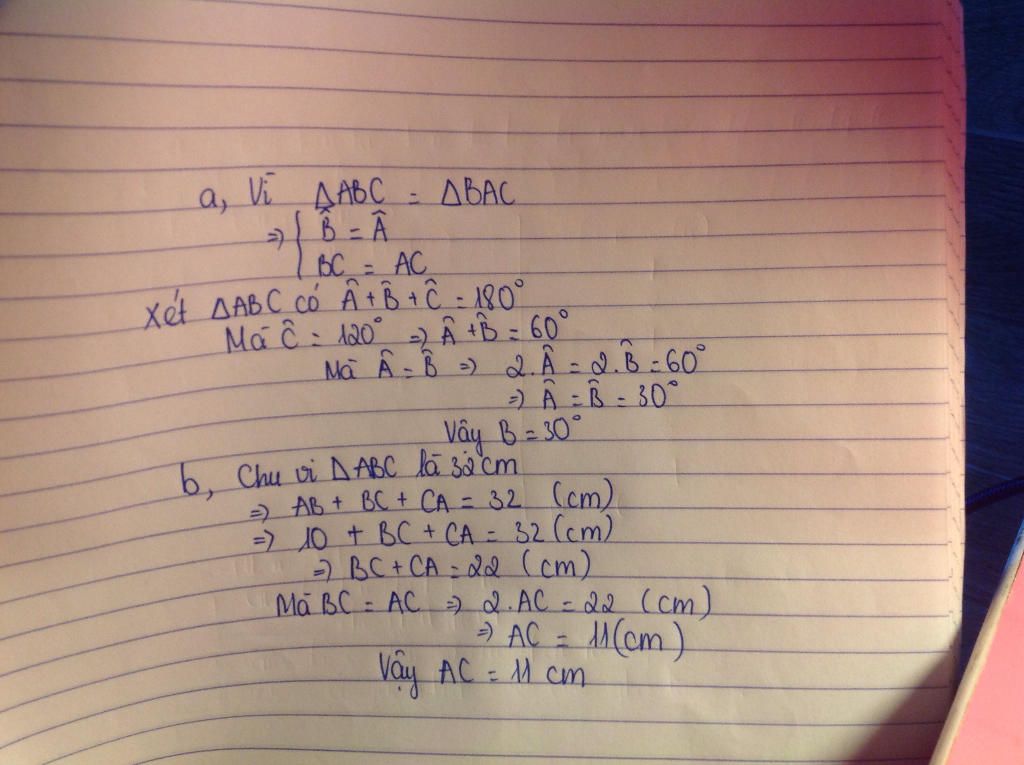 a, Vì ΔABC = ΔBAC
⇒ { B̂ = Â
BC = AC
Xét ΔABC có Â + B̂ + Ĉ = 180°
Mà Ĉ = 120° ⇒ Â + B̂ = 60°
Mà Â = B̂ ⇒ 2. Â = 2. B̂ = 60°
⇒ Â = B̂ = 30°
Vậy B = 30°
b, Chu vi ΔABC là 32 cm
⇒ AB + BC + CA = 32 (cm)
⇒ 10 + BC + CA = 32 (cm)
⇒ BC + CA = 22 (cm)
Mà BC = AC ⇒ 2. AC = 22 (cm)
⇒ AC = 11 (cm)
Vậy AC = 11 cm